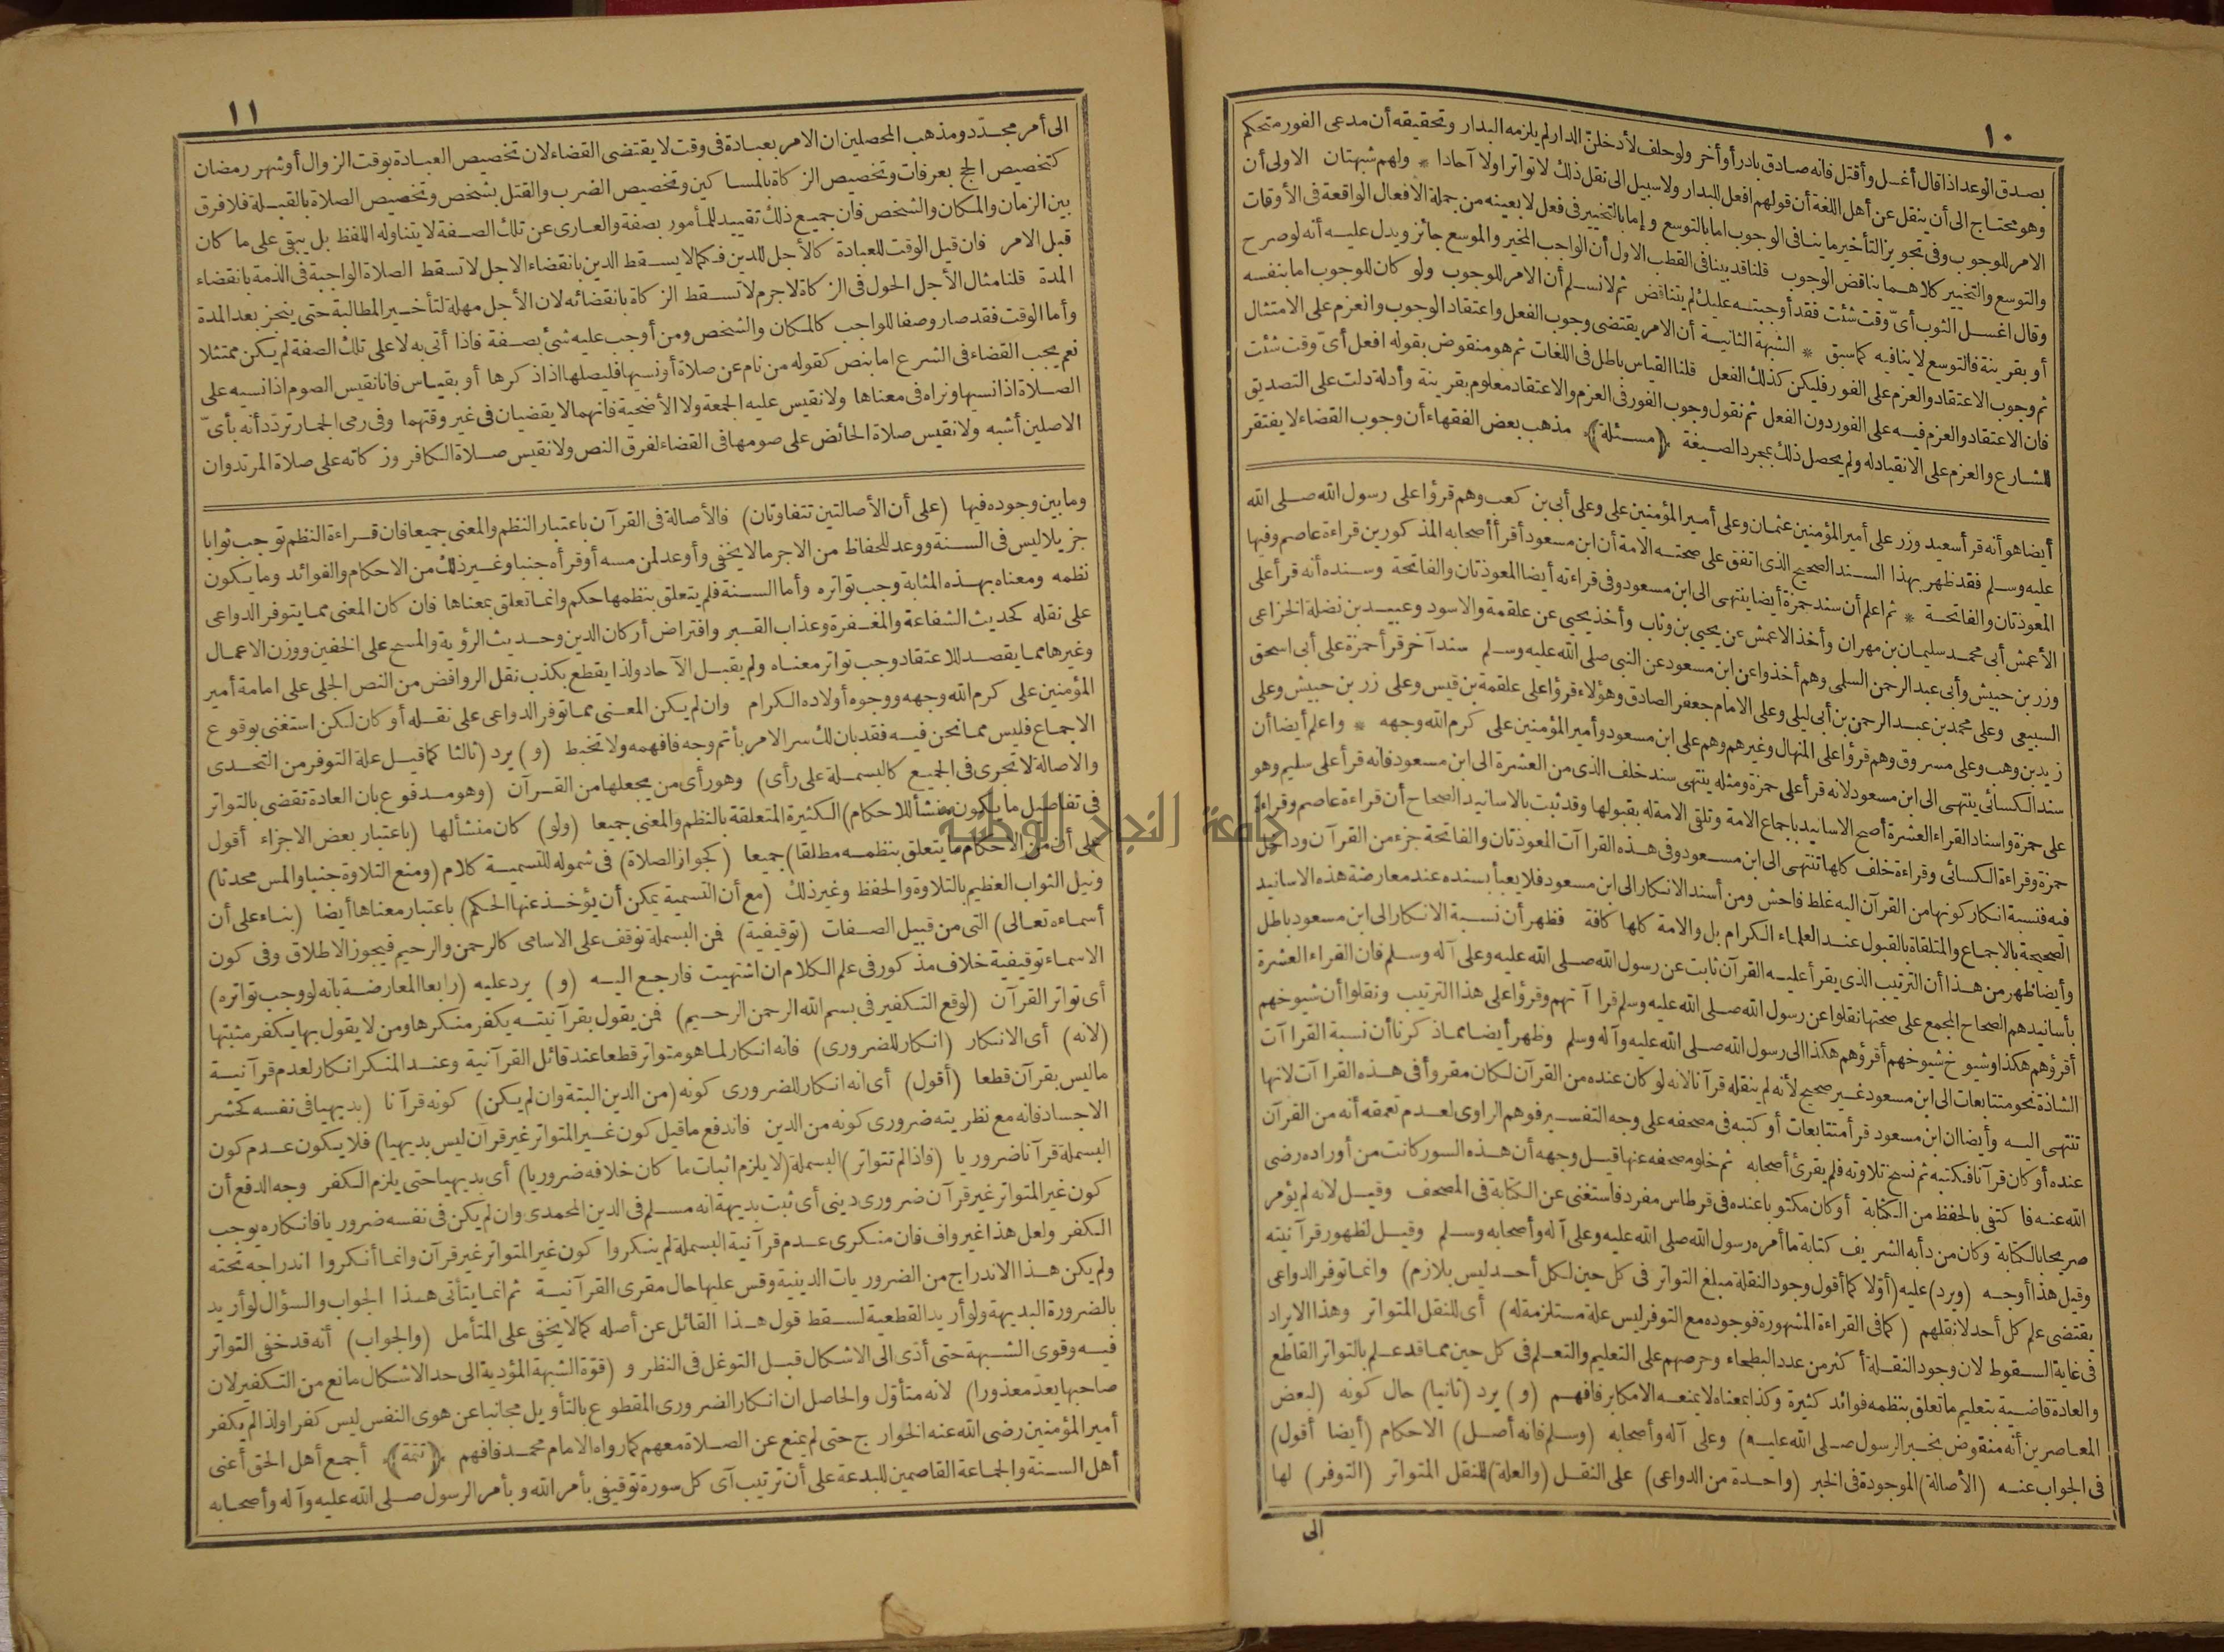 ١٠
بصدق الوعد اذا قال أغسل وأقتل فانه صادق بادر أو أخر ولو حلف لأدخلن الدار لم يلزمه البدار وتحقيقه أن مدعى الفور متحكم
وهو محتاج الى أن ينقل عن أهل اللغة أن قولهم افعل للبدار ولا سبيل الى نقل ذلك لا تواترا ولا آحادا * ولهم شبهتان الاولى أن
الامر للوجوب وفى تجويز التأخير ما ينافى الوجوب اما بالتوسع وإما بالتخيير فى فعل لا بعينه من جملة الأفعال الواقعة فى الأوقات
والتوسع والتخيير كلاهما يناقض الوجوب قلنا قد بينا فى القطب الاول أن الواجب المخير والموسع جائز ويدل عليه أنه لو صرح
وقال اغسل الثوب أىّ وقت شئت فقد أوجبته عليك لم يتناقض ثم لا نسلم أن الامر للوجوب ولو كان للوجوب اما بنفسه
أو بقرينة فالتوسع لا ينافيه كما سبق * الشبهة الثانية أن الامر يقتضى وجوب الفعل واعتقاد الوجوب والعزم على الامتثال
ثم وجوب الاعتقاد والعزم على الفور فليكن كذلك الفعل قلنا القياس باطل فى اللغات ثم هو منقوض بقوله افعل أىّ وقت شئت
فان الاعتقاد والعزم فيه على الفور دون الفعل ثم نقول وجوب الفور فى العزم والاعتقاد معلوم بقرينة وأدلة دلت على التصديق
للشارع والعزم على الانقياد له ولم يحصل ذلك بمجرد الصيغة ﴿مسئلة﴾ مذهب بعض الفقهاء أن وجوب القضاء لا يفتقر
أيضا هو أنه قرأ سعيد وزر على أمير المؤمنين عثمان وعلى أمير المؤمنين على وعلى أبى بن كعب وهم قرؤا على رسول الله صلى الله
عليه وسلم فقد ظهر بهذا السند الصحيح الذى اتفق على صحته الامة أن ابن مسعود أقرأ أصحابه المذكورين قراءة عاصم وفيها
المعوذتان والفاتحة * ثم اعلم أن سند حمزة أيضا ينتهى الى ابن مسعود وفى قراءته أيضا المعوذتان والفاتحة وسنده أنه قرأ على
الأعمش أبى محمد سليمان بن مهران وأخذ الاعمش عن يحيى بن وثاب وأخذ يحيى عن علقمة والاسود وعبيد بن نضلة الخزاعى
وزر بن حبيش وأبى عبد الرحمن السلمى وهم أخذوا عن ابن مسعود عن النبى صلى الله عليه وسلم سند آخر قرأ حمزة على أبى اسحق
السبيعى وعلى محمد بن عبد الرحمن بن أبى ليلى وعلى الامام جعفر الصادق وهؤلاء قرؤا على علقمة بن قيس وعلى زر بن حبيش وعلى
زيد بن وهب وعلى مسروق وهم قرؤا على المنهال وغيرهم وهم على ابن مسعود وأمير المؤمنين على كرم الله وجهه * واعلم أيضا أن
سند الكسائى ينتهى الى ابن مسعود لانه قرأ على حمزة ومثله ينتهى سند خلف الذى من العشرة الى ابن مسعود فانه قرأ على سليم وهو
على حمزة واسناد القراء العشرة أصح الاسانيد باجماع الامة وتلقى الامة له بقبولها وقد ثبت بالاسانيد الصحاح أن قراءة عاصم وقراءة
حمزة وقراءة الكسائى وقراءة خلف كلها تنتهى الى ابن مسعود وفى هذه القراآت المعوذتان والفاتحة جزء من القرآن وداخل
فيه فنسبة انكار كونها من القرآن اليه غلط فاحش ومن أسند الانكار الى ابن مسعود فلا يعبأ بسنده عند معارضة هذه الاسانيد
الصحيحة بالاجماع والمتلقاة بالقبول عند العلماء الكرام بل والامة كلها كافة فظهر أن نسبة الانكار الى ابن مسعود باطل
وأيضا ظهر من هذا أن الترتيب الذى يقرأ عليه القرآن ثابت عن رسول الله صلى الله عليه وعلى آله وسلم فان القراء العشرة
بأسانيدهم الصحاح المجمع على صحتها نقلوا عن رسول الله صلى الله عليه وسلم قراآتهم وقرؤا على هذا الترتيب ونقلوا أن شيوخهم
أقرؤهم هكذا وشيوخ شيوخهم أقرؤهم هكذا الى رسول الله صلى الله عليه وآله وسلم وظهر أيضا مما ذكرنا أن نسبة القراآت
الشاذة نحو متتابعات الى ابن مسعود غير صحيح لأنه لم ينقله قرآنا لانه لو كان عنده من القرآن لكان مقروأ فى هذه القراآت لانها
تنتهى اليه وأيضا ان ابن مسعود قرأ متتابعات أو كتبه فى مصحفه على وجه التفسير فوهم الراوى لعدم تعمقه أنه من القرآن
عنده أو كان قرآنا فكتبه ثم نسخ تلاوته فلم يقرئ أصحابه ثم خلو مصحفه عنها قيل وجهه أن هذه السور كانت من أوراده رضى
الله عنه فاكتفى بالحفظ من الكتابة أو كان مكتوبا عنده فى قرطاس مفرد فاستغنى عن الكتابة فى المصحف وقيل لانه لم يؤمر
صريحا بالكتابة وكان من دأبه الشريف كتابة ما أمره رسول الله صلى الله عليه وعلى آله وأصحابه وسلم وقيل لظهور قرآنيته
وقيل هذا أوجه (ويرد) عليه (أوّلا كما أقول وجود النقلة مبلغ التواتر فى كل حين لكل أحد ليس بلازم) وانما توفر الدواعى
يقتضى علم كل أحد لا نقلهم (كما فى القراءة المشهورة فوجوده مع التوفر ليس علة مستلزمة له) أى للنقل المتواتر وهذا الايراد
فى غاية السقوط لان وجود النقلة أكثر من عدد البطحاء وحرصهم على التعليم والتعلم فى كل حين مما قد علم بالتواتر القاطع
والعادة قاضية بتعليم ما تعلق بنظمه فوائد كثيرة وكذا بمعناه لا يمنعه الا مكابر فافهم (و) يرد (ثانيا) حال كونه (لبعض
المعاصرين أنه منقوض بخبر الرسول صلى الله عليه) وعلى آله وأصحابه (وسلم فانه أصل) الاحكام (أيضا أقول)
فى الجواب عنه (الأصالة) الموجودة فى الخبر (واحدة من الدواعى) على النقل (والعلة) للنقل المتواتر (التوفر) لها
الى
١١
الى أمر مجدّد ومذهب المحصلين ان الامر بعبادة فى وقت لا يقتضى القضاء لان تخصيص العبادة بوقت الزوال أو شهر رمضان
كتخصيص الحج بعرفات وتخصيص الزكاة بالمساكين وتخصيص الضرب والقتل بشخص وتخصيص الصلاة بالقبلة فلا فرق
بين الزمان والمكان والشخص فان جميع ذلك تقييد للمأمور بصفة والعارى عن تلك الصفة لا يتناوله اللفظ بل يبقى على ما كان
قبل الامر فان قيل الوقت للعبادة كالأجل للدين فكما لا يسقط الدين بانقضاء الاجل لا تسقط الصلاة الواجبة فى الذمة بانقضاء
المدة قلنا مثال الأجل الحول فى الزكاة لا جرم لا تسقط الزكاة بانقضائه لان الأجل مهلة لتأخير المطالبة حتى ينجز بعد المدة
وأما الوقت فقد صار وصفا للواجب كالمكان والشخص ومن أوجب عليه شئ بصفة فاذا أتى به لا على تلك الصفة لم يكن ممتثلا
نعم يجب القضاء فى الشرع اما بنص كقوله من نام عن صلاة أو نسيها فليصلها اذا ذكرها أو بقياس فانا نقيس الصوم اذا نسيه على
الصلاة اذا نسيها ونراه فى معناها ولا نقيس عليه الجمعة ولا الأضحية فانهما لا يقضيان فى غير وقتهما وفى رمى الجمار تردّد أنه بأىّ
الاصلين أشبه ولا نقيس صلاة الحائض على صومها فى القضاء لفرق النص ولا نقيس صلاة الكافر وزكاته على صلاة المرتد وان
وما بين وجوده فيها (على أن الأصالتين تتفاوتان) فالأصالة فى القرآن باعتبار النظم والمعنى جميعا فان قراءة النظم توجب ثوابا
جزيلا ليس فى السنة ووعد للحفاظ من الاجر مالا يخفى وأوعد لمن مسه أو قرأه جنبا وغير ذلك من الاحكام والفوائد وما يكون
نظمه ومعناه بهذه المثابة وجب تواتره وأما السنة فلم يتعلق بنظمها حكم وانما تعلق بمعناها فان كان المعنى مما يتوفر الدواعى
على نقله كحديث الشفاعة والمغفرة وعذاب القبر وافتراض أركان الدين وحديث الرؤية والمسح على الخفين ووزن الاعمال
وغيرها مما يقصد للاعتقاد وجب تواتر معناه ولم يقبل الآحاد ولذا يقطع بكذب نقل الروافض من النص الجلى على امامة أمير
المؤمنين على كرم الله وجهه ووجوه أولاده الكرام وان لم يكن المعنى مما توفر الدواعى على نقله أو كان لكن استغنى بوقوع
الاجماع فليس مما نحن فيه فقد بان لك سر الامر بأتم وجه فافهمه ولا تخبط (و) يرد (ثالثا كما قيل علة التوفر من التحدى
والاصالة لا تجرى فى الجميع كالبسملة على رأى) وهو رأى من يجعلها من القرآن (وهو مدفوع بان العادة تقضى بالتواتر
فى تفاصيل ما يكون منشأ للاحكام) الكثيرة المتعلقة بالنظم والمعنى جميعا (ولو) كان منشألها (باعتبار بعض الاجزاء أقول
على أن من الاحكام ما يتعلق بنظمه مطلقا) جميعا (كجواز الصلاة) فى شموله للتسمية كلام (ومنع التلاوة جنبا والمس محدثا)
ونيل الثواب العظيم بالتلاوة والحفظ وغير ذلك (مع أن التسمية يمكن أن يؤخذ عنها الحكم) باعتبار معناها أيضا (بناء على أن
أسماءه تعالى) التى من قبيل الصفات (توقيفية) فمن البسملة توقف على الاسامى كالرحمن والرحيم فيجوز الاطلاق وفى كون
الاسماء توقيفية خلاف مذكور فى علم الكلام ان اشتهيت فارجع اليه (و) يرد عليه (رابعا المعارضة بانه لو وجب تواتره)
أى تواتر القرآن (لوقع التكفير فى بسم الله الرحمن الرحيم) فمن يقول بقرآنيته يكفر منكرها ومن لا يقول بها يكفر مثبتها
(لانه) أى الانكار (انكار للضرورى) فانه انكار لما هو متواتر قطعا عند قائل القرآنية وعند المنكر انكار لعدم قرآنية
ما ليس بقرآن قطعا (أقول) أى انه انكار للضرورى كونه (من الدين البتة وان لم يكن) كونه قرآنا (بديهيا فى نفسه كحشر
الاجساد فانه مع نظريته ضرورى كونه من الدين فاندفع ما قيل كون غير المتواتر غير قرآن ليس بديهيا) فلا يكون عدم كون
البسملة قرآنا ضروريا (فاذا لم تتواتر) البسملة (لا يلزم اثبات ما كان خلافه ضروريا) أى بديهيا حتى يلزم الكفر وجه الدفع أن
كون غير المتواتر غير قرآن ضرورى دينى أى ثبت بديهة انه مسلم فى الدين المحمدى وان لم يكن فى نفسه ضروريا فانكاره يوجب
الكفر ولعل هذا غير واف فان منكرى عدم قرآنية البسملة لم ينكروا كون غير المتواتر غير قرآن وانما أنكروا اندراجه تحته
ولم يكن هذا الاندراج من الضروريات الدينية وقس عليها حال مقرى القرآنية ثم انما يتأتى هذا الجواب والسؤال لو أريد
بالضرورة البديهة ولو أريد القطعية لسقط قول هذا القائل عن أصله كما لا يخفى على المتأمل (والجواب) أنه قد خفى التواتر
فيه وقوى الشبهة حتى أدّى الى الاشكال قبل التوغل فى النظر و (قوّة الشبهة المؤدية الى حد الاشكال مانع من التكفير لان
صاحبها يعدّ معذورا) لانه متأوّل والحاصل ان انكار الضرورى المقطوع بالتأويل مجانبا عن هوى النفس ليس كفرا ولذا لم يكفر
أمير المؤمنين رضى الله عنه الخوارج حتى لم يمنع عن الصلاة معهم كما رواه الامام محمد فافهم ﴿تتمة﴾ أجمع أهل الحق أعنى
أهل السنة والجماعة القاصمين للبدعة على أن ترتيب آى كل سورة توقيفى بأمر الله وبأمر الرسول صلى الله عليه وآله وأصحابه
جامعة النجاح الوطنية